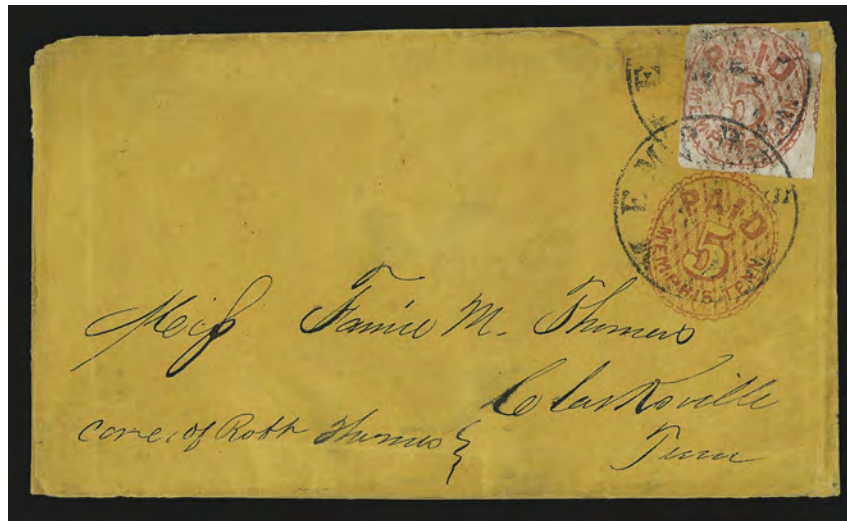 PAID
5
MEMPHIS, TENN.
MEMPHIS
PAID
5
MEMPHIS, TENN.
Miss Fannie M. Thomas
Clarksville
care of Robt Thomas
Tenn